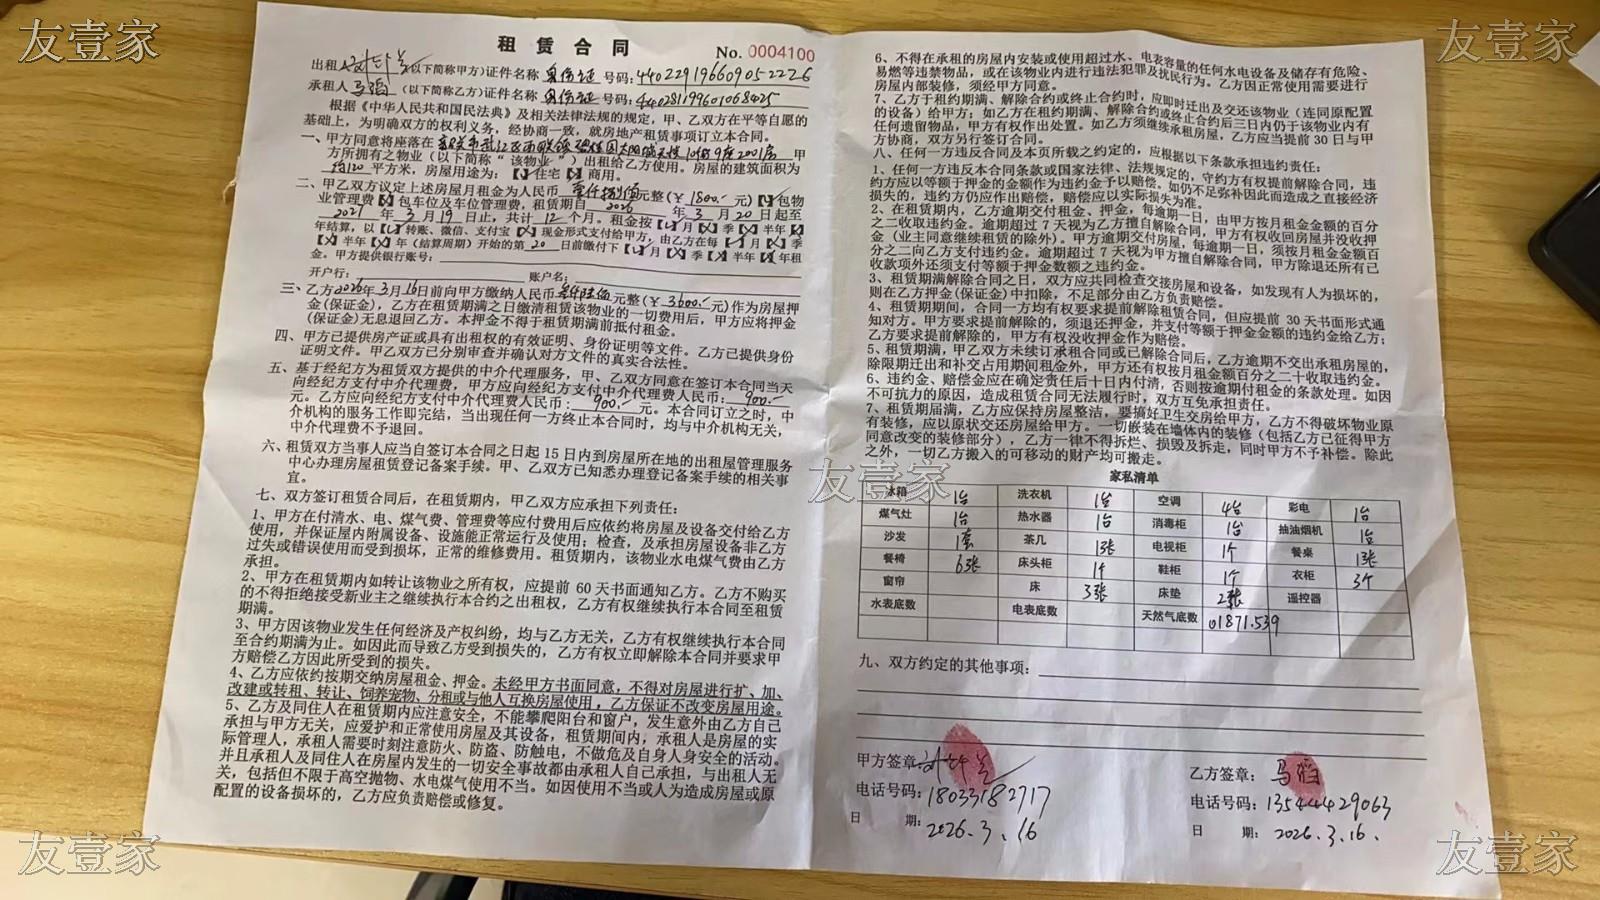 友壹家
友壹家
租赁合同
No. 0004100
出租人 (以下简称甲方)证件名称 身份证 号码:440229196609052226
承租人 马滔 (以下简称乙方)证件名称 身份证 号码:440281199601068425
根据《中华人民共和国民法典》及相关法律法规的规定，甲、乙双方在平等自愿的
基础上，为明确双方的权利义务，经协商一致，就房地产租赁事项订立本合同。
一、甲方同意将座落在 10栋9座2001房 甲
方所拥有之物业（以下简称“该物业”）出租给乙方使用。房屋的建筑面积为
约120平方米，房屋用途为：【✓】住宅【✗】商用。
二、甲乙双方议定上述房屋月租金为人民币 壹仟捌佰元整(￥1800.-元)【✓】包物
业管理费【✗】包车位及车位管理费，租赁期自 2026 年 3 月 20 日起至
2027 年 3 月 19 日止，共计 12 个月。租金按【✓】月【✗】季【✗】半年【✗】
年结算，以【✓】转账、微信、支付宝【✗】现金形式支付给甲方，由乙方在每【✓】月【✗】季
【✗】半年【✗】年（结算周期）开始的第 20 日前缴付下【✓】月【✗】季【✗】半年【✗】年租
金。甲方提供银行账号：
开户行： 账户名：
三、乙方2026年3月16日前向甲方缴纳人民币叁仟陆佰元整(￥3600.-元)作为房屋押
金(保证金)，乙方在租赁期满之日缴清租赁该物业的一切费用后，甲方应将押金
(保证金)无息退回乙方。本押金不得于租赁期满前抵付租金。
四、甲方已提供房产证或具有出租权的有效证明、身份证明等文件。乙方已提供身份
证明文件。甲乙双方已分别审查并确认对方文件的真实合法性。
五、基于经纪方为租赁双方提供的中介代理服务，甲、乙双方同意在签订本合同当天
向经纪方支付中介代理费，甲方应向经纪方支付中介代理费人民币：900.-
元。乙方应向经纪方支付中介代理费人民币：900.- 元。本合同订立之时，中
介机构的服务工作即完结，当出现任何一方终止本合同时，均与中介机构无关，
中介代理费不予退回。
六、租赁双方当事人应当自签订本合同之日起 15 日内到房屋所在地的出租屋管理服务
中心办理房屋租赁登记备案手续。甲、乙双方已知悉办理登记备案手续的相关事
宜。
七、双方签订租赁合同后，在租赁期内，甲乙双方应承担下列责任：
1、甲方在付清水、电、煤气费、管理费等应付费用后应依约将房屋及设备交付给乙方
使用，并保证屋内附属设备、设施能正常运行及使用；检查，及承担房屋设备非乙方
过失或错误使用而受到损坏，正常的维修费用。租赁期内，该物业水电煤气费由乙方
承担。
2、甲方在租赁期内如转让该物业之所有权，应提前 60 天书面通知乙方。乙方不购买
的不得拒绝接受新业主之继续执行本合约之出租权，乙方有权继续执行本合同至租赁
期满。
3、甲方因该物业发生任何经济及产权纠纷，均与乙方无关，乙方有权继续执行本合同
至合约期满为止。如因此而导致乙方受到损失的，乙方有权立即解除本合同并要求甲
方赔偿乙方因此所受到的损失。
4、乙方应依约按期交纳房屋租金、押金。未经甲方书面同意，不得对房屋进行扩、加、
改建或转租、转让、饲养宠物、分租或与他人互换房屋使用，乙方保证不改变房屋用途。
5、乙方及同住人在租赁期内应注意安全，不能攀爬阳台和窗户，发生意外由乙方自己
承担与甲方无关，应爱护和正常使用房屋及其设备，租赁期间内，承租人是房屋的实
际管理人，承租人需要时刻注意防火、防盗、防触电，不做危及自身人身安全的活动。
并且承租人及同住人在房屋内发生的一切安全事故都由承租人自己承担，与出租人无
关，包括但不限于高空抛物、水电煤气使用不当。如因使用不当或人为造成房屋或原
配置的设备损坏的，乙方应负责赔偿或修复。
6、不得在承租的房屋内安装或使用超过水、电表容量的任何水电设备及储存有危险、
易燃等违禁物品，或在该物业内进行违法犯罪及扰民行为。乙方因正常使用需要进行
房屋内部装修，须经甲方同意。
7、乙方于租约期满、解除合约或终止合约时，应即时迁出及交还该物业（连同原配置
的设备）给甲方；如乙方在租约期满、解除合约或终止合约后三日内仍于该物业内有
任何遗留物品，甲方有权作出处置。如乙方须继续承租房屋，乙方应当提前 30 日与甲
方协商，双方另行签订合同。
八、任何一方违反合同及本页所载之约定的，应根据以下条款承担违约责任：
1、任何一方违反本合同条款或国家法律、法规规定的，守约方有权提前解除合同，违
约方应以等额于押金的金额作为违约金予以赔偿。如仍不足弥补因此而造成之直接经济
损失的，违约方仍应作出赔偿，赔偿应以实际损失为准。
2、在租赁期内，乙方逾期交付租金、押金，每逾期一日，由甲方按月租金金额的百分
之二收取违约金。逾期超过 7 天视为乙方擅自解除合同，甲方有权收回房屋并没收押
金（业主同意继续租赁的除外）。甲方逾期交付房屋，每逾期一日，须按月租金金额百
分之二向乙方支付违约金。逾期超过 7 天视为甲方擅自解除合同，甲方除退还所有已
收款项外还须支付等额于押金数额之违约金。
3、租赁期满解除合同之日，双方应共同检查交接房屋和设备，如发现有人为损坏的，
则在乙方押金(保证金)中扣除，不足部分由乙方负责赔偿。
4、租赁期期间，合同一方均有权要求提前解除租赁合同，但应提前 30 天书面形式通
知对方。甲方要求提前解除的，须退还押金，并支付等额于押金金额的违约金给乙方；
乙方要求提前解除的，甲方有权没收押金作为赔偿。
5、租赁期满，甲乙双方未续订承租合同或已解除合同后，乙方逾期不交出承租房屋的，
除限期迁出和补交占用期间租金外，甲方还有权按月租金额百分之二十收取违约金。
6、违约金、赔偿金应在确定责任后十日内付清，否则按逾期付租金的条款处理。如因
不可抗力的原因，造成租赁合同无法履行时，双方互免承担责任。
7、租赁期届满，乙方应保持房屋整洁，要搞好卫生交房给甲方，乙方不得破坏物业原
有装修，应以原状交还房屋给甲方。一切嵌装在墙体内的装修（包括乙方已征得甲方
同意改变的装修部分），乙方一律不得拆烂、损毁及拆走，同时甲方不予补偿。除此
之外，一切乙方搬入的可移动的财产均可搬走。
友壹家
家私清单
冰箱 1台 洗衣机 1台 空调 4台 彩电 1台
煤气灶 1台 热水器 1台 消毒柜 1台 抽油烟机 1台
沙发 1套 茶几 1张 电视柜 1个 餐桌 1张
餐椅 6张 床头柜 1个 鞋柜 1个 衣柜 3个
窗帘 床 3张 床垫 2张 遥控器
水表底数 电表底数 天然气底数 01871.539
九、双方约定的其他事项：
甲方签章：
电话号码：18033182717
日 期：2026.3.16
乙方签章：马滔
电话号码：13544429063
日 期：2026.3.16.
友壹家
友壹家